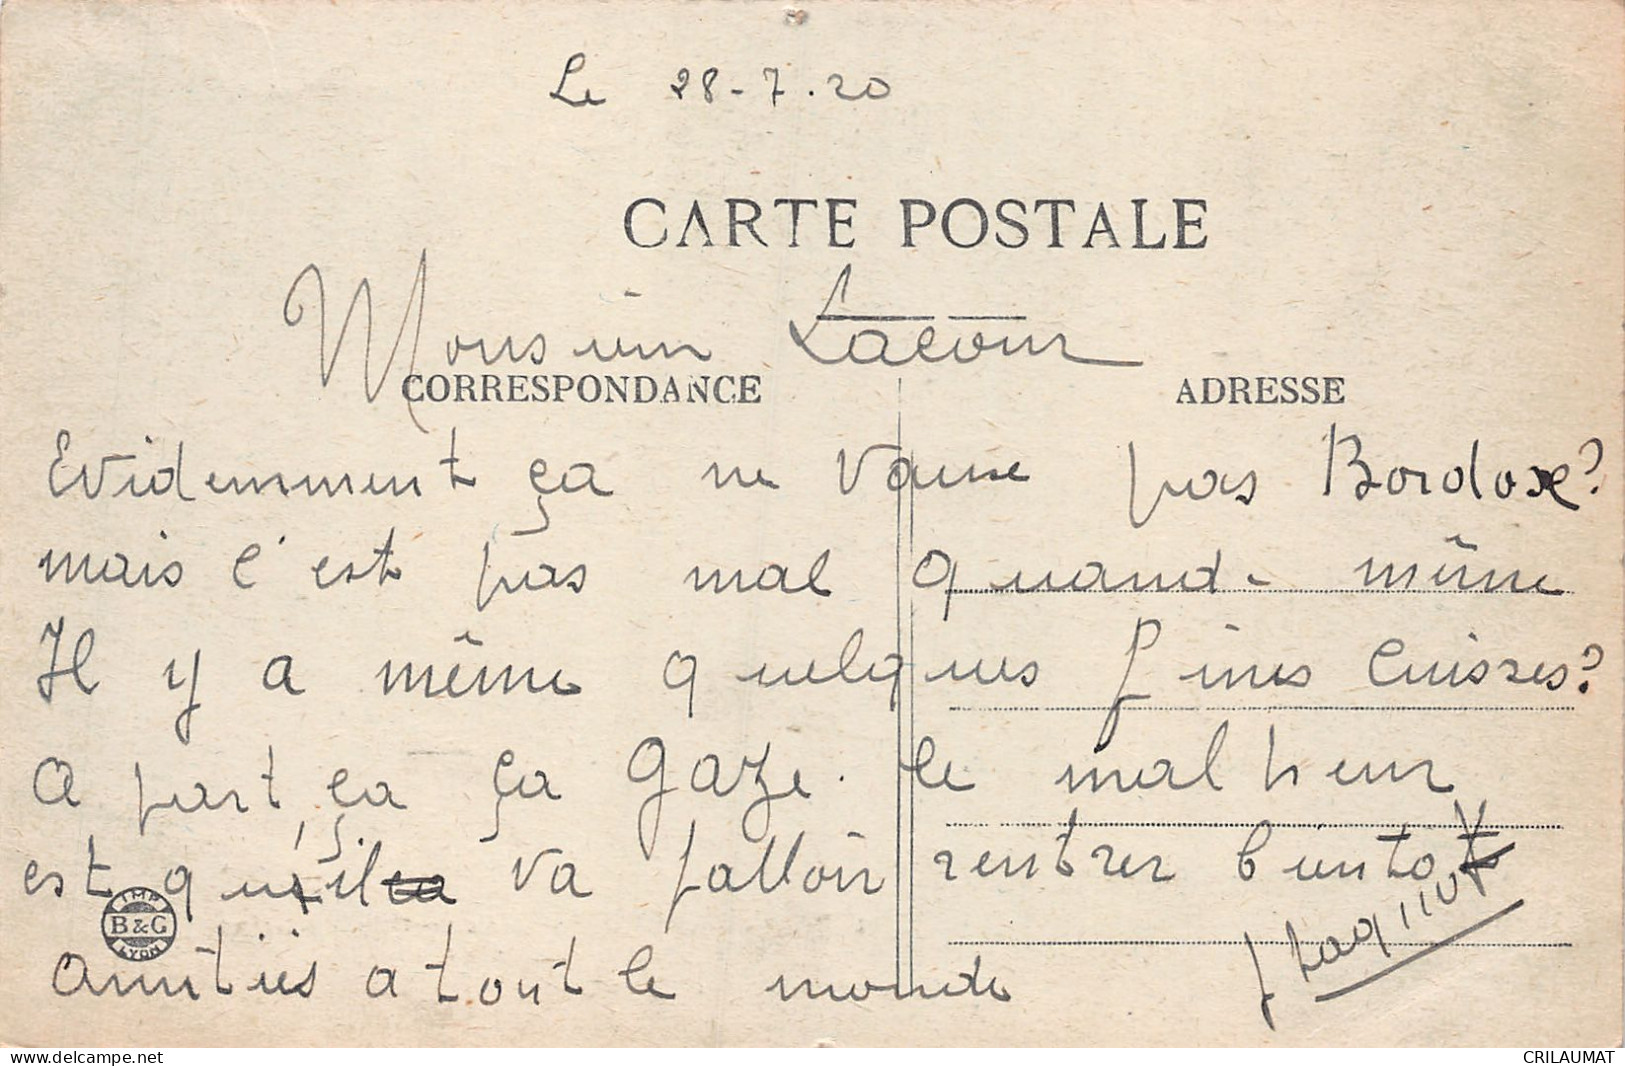 Le 28-7.20
CARTE POSTALE
Monsieur Lacour
CORRESPONDANCE ADRESSE
Evidemment ça ne vausse pas Bordoxe?
mais c'est pas mal quand même
Il y a même quelques fines cuisses?
a part ça ça gaze. le malheur
est qu'il va falloir rentrer bientot
IMP
B&G
LYON
Amitiés a tout le monde
www.delcampe.net
CRILAUMAT